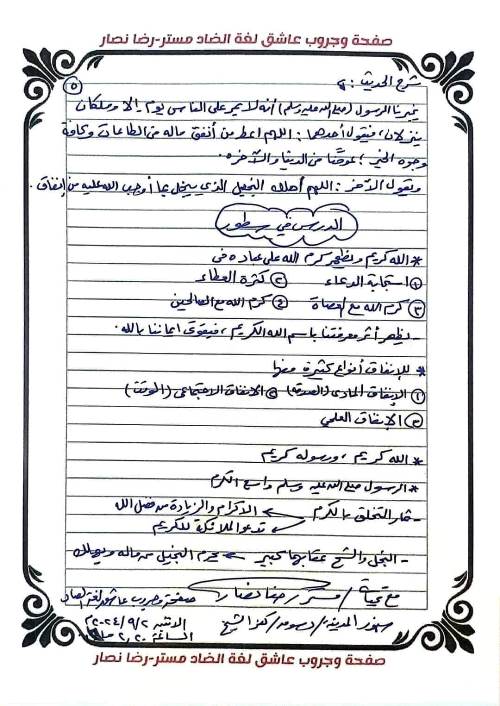 صفحة وجروب عاشق لغة الضاد مستر-رضا نصار
٥
شرح الحديث :-
يخبرنا الرسول (صلى الله عليه وسلم) أنه لا يمر على الناس يوم إلا وملكان
ينزلان، فيقول أحدهما : اللهم اعط من أنفق ماله من الطاعات وكافة
وجوه الخير ؛ عوضًا من الدنيا والآخره.
ويقول الآخر : اللهم أهلك البخيل الذي يبخل بما أوجب الله عليه من إنفاق.
الدرس في سطور
* الله كريم ويظهر كرم الله على عباده في
① استجابة الدعاء ② كثرة العطاء
③ كرم الله مع العصاة ④ كرم الله مع الصالحين
- يظهر أثر معرفتنا باسم الله الكريم ، فيقوى إيماننا بالله.
* للإنفاق أنواع كثيرة منها
① الإنفاق المادى (الصدقة) ② الإنفاق الاجتماعى (الوقت)
③ الإنفاق العلمي
* الله كريم ، ورسوله كريم
* الرسول صلى الله عليه وسلم واسع الكرم
- ثمار التخلق بالكرم ← الإكرام والزيادة من فضل الله
← تدعو الملائكة للكريم
- البخل والشح عقابهما كبير ← يحرم البخيل من ماله ويهلك
مع تحيات / مستر / رضا نصار صفحة وجروب عاشق لغة الضاد
دسوق / كفر الشيخ الاثنين ٢٠٢٤/٩/٢م
الساعة ٢,٢٠
صفحة وجروب عاشق لغة الضاد مستر-رضا نصار